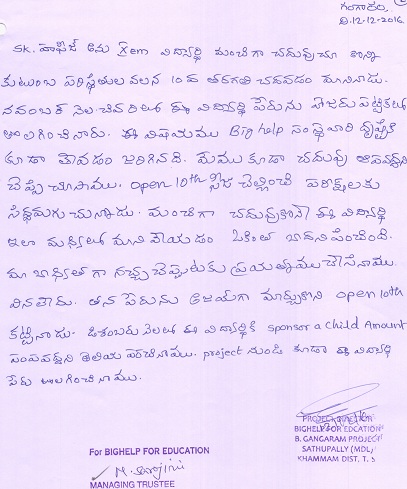 గంగారం,
ది.12-12-2016.
SK. హాఫిజ్ అను Xem విద్యార్థి మంచిగా చదువుచూ కొన్ని
కుటుంబ పరిస్థితుల వలన 10వ తరగతి చదవడం మానినాడు.
నవంబర్ నెల చివరిలో ఈ విద్యార్థి పేరును హాజరు పట్టికలో
తొలగించినారు. ఈ విషయము Big help సంస్థవారి దృష్టికి
కూడా తేవడం జరిగినది. మేము కూడా చదువు ఆపవద్దని
చెప్పి చూసాము. open 10th ఫీజు చెల్లించి పరీక్షలకు
సిద్ధమగుచున్నాడు. మంచిగా చదువుకొనే ఈ విద్యార్థి
ఇలా మధ్యలో మాని వేయడం ఎంతో బాధనిపించింది.
మా బాధ్యత గా నచ్చచెప్పుటకు ప్రయత్నము చేసినాము.
వినలేదు. తన పేరును open 10th
కట్టినాడు. డిశంబరు నెలలో ఈ విద్యార్థికి sponsor a child Amount
పంపవద్దని తెలియ పరచినాము. project నుండి కూడా ఈ విద్యార్థి
పేరు తొలగించినాము.
For BIGHELP FOR EDUCATION
M. Sarojini
MANAGING TRUSTEE
BIGHELP FOR EDCATION
B. GANGARAM PROJECT
SATHUPALLY (MDL)
KHAMMAM DIST. T. S